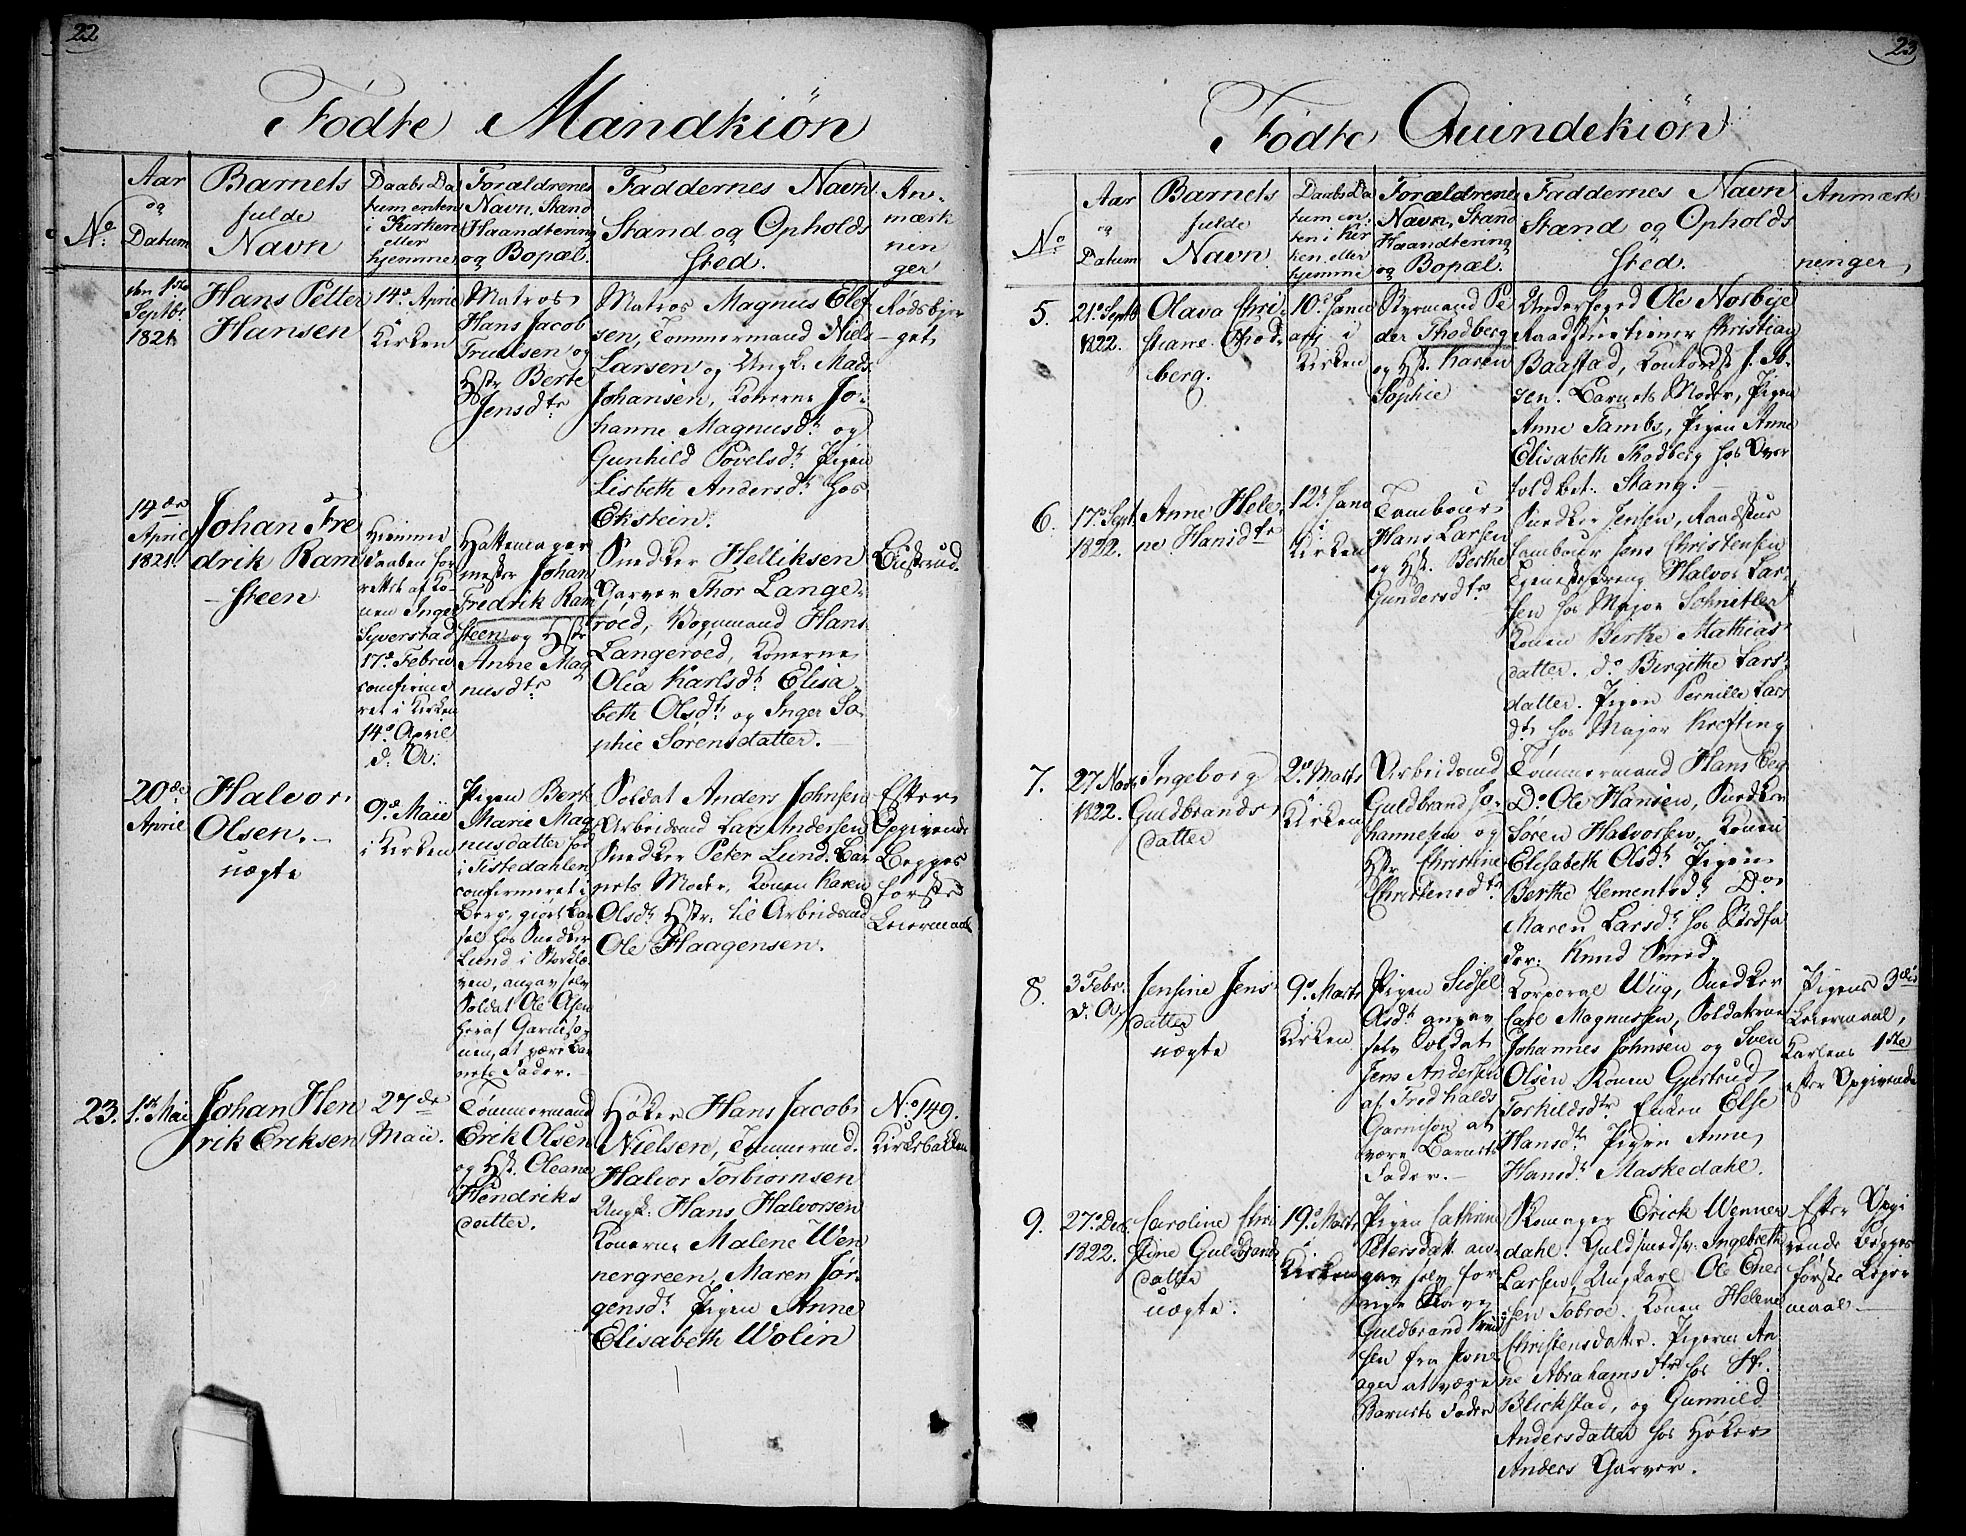 22
Fødte Mandkiön
No
Aar
og
Datum
Barnets
fulde
Navn
Daabs Da
tum enten
i Kirken
eller
hjemme
Forældrenes
Navn, Stand
Haandtering
og Bopæl.
Faddernes Navn
Stand og Opholds
sted.
An-
mærk
nin
ger
Septbr
1821
Hans Petter
Hansen
14de April
i
Kirken
Matros
Hans Jacob
Truelsen og
Hstr Berte
Jensdtr
Matros Magnus Elef
sen, Tømmermand Niels
Larsen og Ungk. Mads
Johansen, Konerne Jo-
hanne Magnusdt og
Gunhild Povelsdt. Pigen
Lisbeth Andersdt. hos
Ekstein.
Rødsbjer
get
14de
April
1821
Johan Fre
drik Ram
steen
Hiemme
daaben for
rettet af Ko-
nen Inger
Syverstad
17de Febru
confirme
ret i Kirken
14de April
d: A:
Hattemager
mester Johan
Fredrik Ram
steen og Hstr
Anne Mag
nusdtr
Snedker Helliksen
Garver Thor Lange-
röed, Bogmand Hans
Langeröed, Konerne
Olea Karlsdt. Elisa
beth Olsdt. og Inger So-
phie Sørensdatter.
Buskerud
20de
April
Halvor
Olsen.
uægte
9de Maii
i Kirken
Pigen Bert
Marie Mag
nusdatter fød
i Tistedahlen
confirmeret i
Berg, giört Bar
sel hos Snedker
Lund i
ven, angav selv
Soldat Ole Olsen
heraf Garniso
nen, at være Bar
nets Fader.
Soldat Anders Johnsen
Arbeidsmd Lars Andersen
Snedker Peter Lund. Bar
nets Moder, Konen Karen
Olsdt. Hstr. til Arbeidsmd
Ole Haagensen.
Efter
Opgivende
Begges
første
Leiermaal
23.
1ste Mai
Johan Hen
rik Eriksen
27de
Maii.
Tömmermand
Erik Olsen
og Hst. Oleane
Hendriks
datter.
Höker Hans Jacob
Nielsen, Tömmermd.
Halvor Torbiörnsen
Ungk. Hans Halvorsen
Konerne Malene Wen
nergreen, Maren Jør-
gensdt. Pigen Anne
Elisabeth Wolin
No 149.
Kirkebakken
23
Fødte Quindekiön
No
Aar
og
Datum
Barnets
fulde
Navn
Daabs Da
tum en
ten i Kir
ken eller
hjemme
Forældrene
Navn, Stand
Haandtering
og Bopæl.
Faddernes Navn
Stand og Opholds
sted.
Anmærk
ninger
5.
21de Septb
1822.
Olava Chri-
stiane Thod-
berg.
10de Janu
arj i
Kirken
Styrmand Pe
der Thodberg
og Hst. Karen
Sophie
Underfoged Ole Norbye
Christian
Baastad, Ib-
sen. Barnets Moder, Pigen
Anne Tambs, Pigen Anne
Elisabeth Thodberg hos Over
toldbet. Stang.
6.
17de Sept.
1822.
Anne Hele-
ne Hansdtr
12te Janu
i
Kirken
Tambour
Hans Larsen
og Hst. Berthe
Gundersdtr
Snedker Jensen, Raadstue
tambour Jens Christensen
Tienestedreng Halvor Lar-
sen hos Major Schnitler
Konen Berthe Mathias
datter. do Birgithe Lars-
datter. Pigen Pernille Lars
dt hos Major Krefting
7.
27 Novb
1822.
Ingeborg
Guldbrands
datter
2de Marts
i
Kirken
Arbeidsmd
Guldbrand Jo-
hannesen og
Hstr Christine
Christensdtr
Tömmermand Hans Berg
Do Ole Hansen, Snedker
Sören Halvorsen, Konen
Elisabeth Olsdt. Pigen
Berthe Clementsdt. Do
Maren Larsdt hos Stedfa
der Knud Smed.
8.
3 Febr.
d: A:
Jensine Jens
datter
uægte
9de Marts
i
Kirken
Pigen Sidsel
Olsdt angav
selv Soldat
Jens Andersen
af Fredhalds
Garnison at
være Barnets
Fader.
Korporal Wiig, Snedker
Carl Magnussen, Soldaterne
Johannes Johnsen og Sven
Olsen Konen Gjertrud
Torkildsdtr Enken Else
Hansdt. Pigen Anne
Hansdt. Maskedahl.
Pigens 3die
Leiermaal,
Karlens 1ste
efter Opgivende
9.
27de Dec.
1822.
Caroline Chri
stine Guldbrands
datter
uægte.
19de Marts
i
Kirken
Pigen Cathrine
Petersdatt. an-
gav selv for
rige Slave
Guldbrand
sen fra Jevn-
ager at være
Barnets Fader
Skomager Erick Wenner
dahl. Guldsmedsv. Ingebreth
Larsen, Ungkarl Ole Ener
sen Tobroe. Konen Helene
Christensdatter. Pigerne An
ne Abrahamsdtr hos
Blickstad, og Gunnild
Andersdatter hos Höker
Anders Garver.
Efter Opgi
vende Begges
første Leier
maal